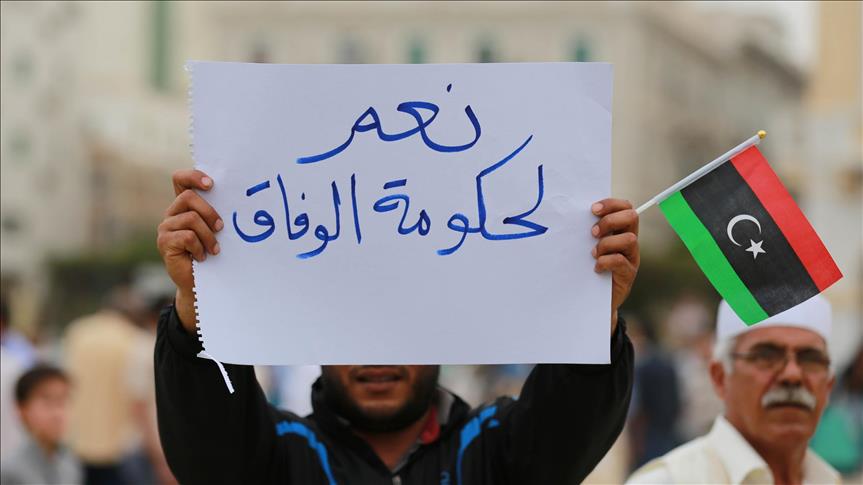 نعم
لحكومة الوفاق